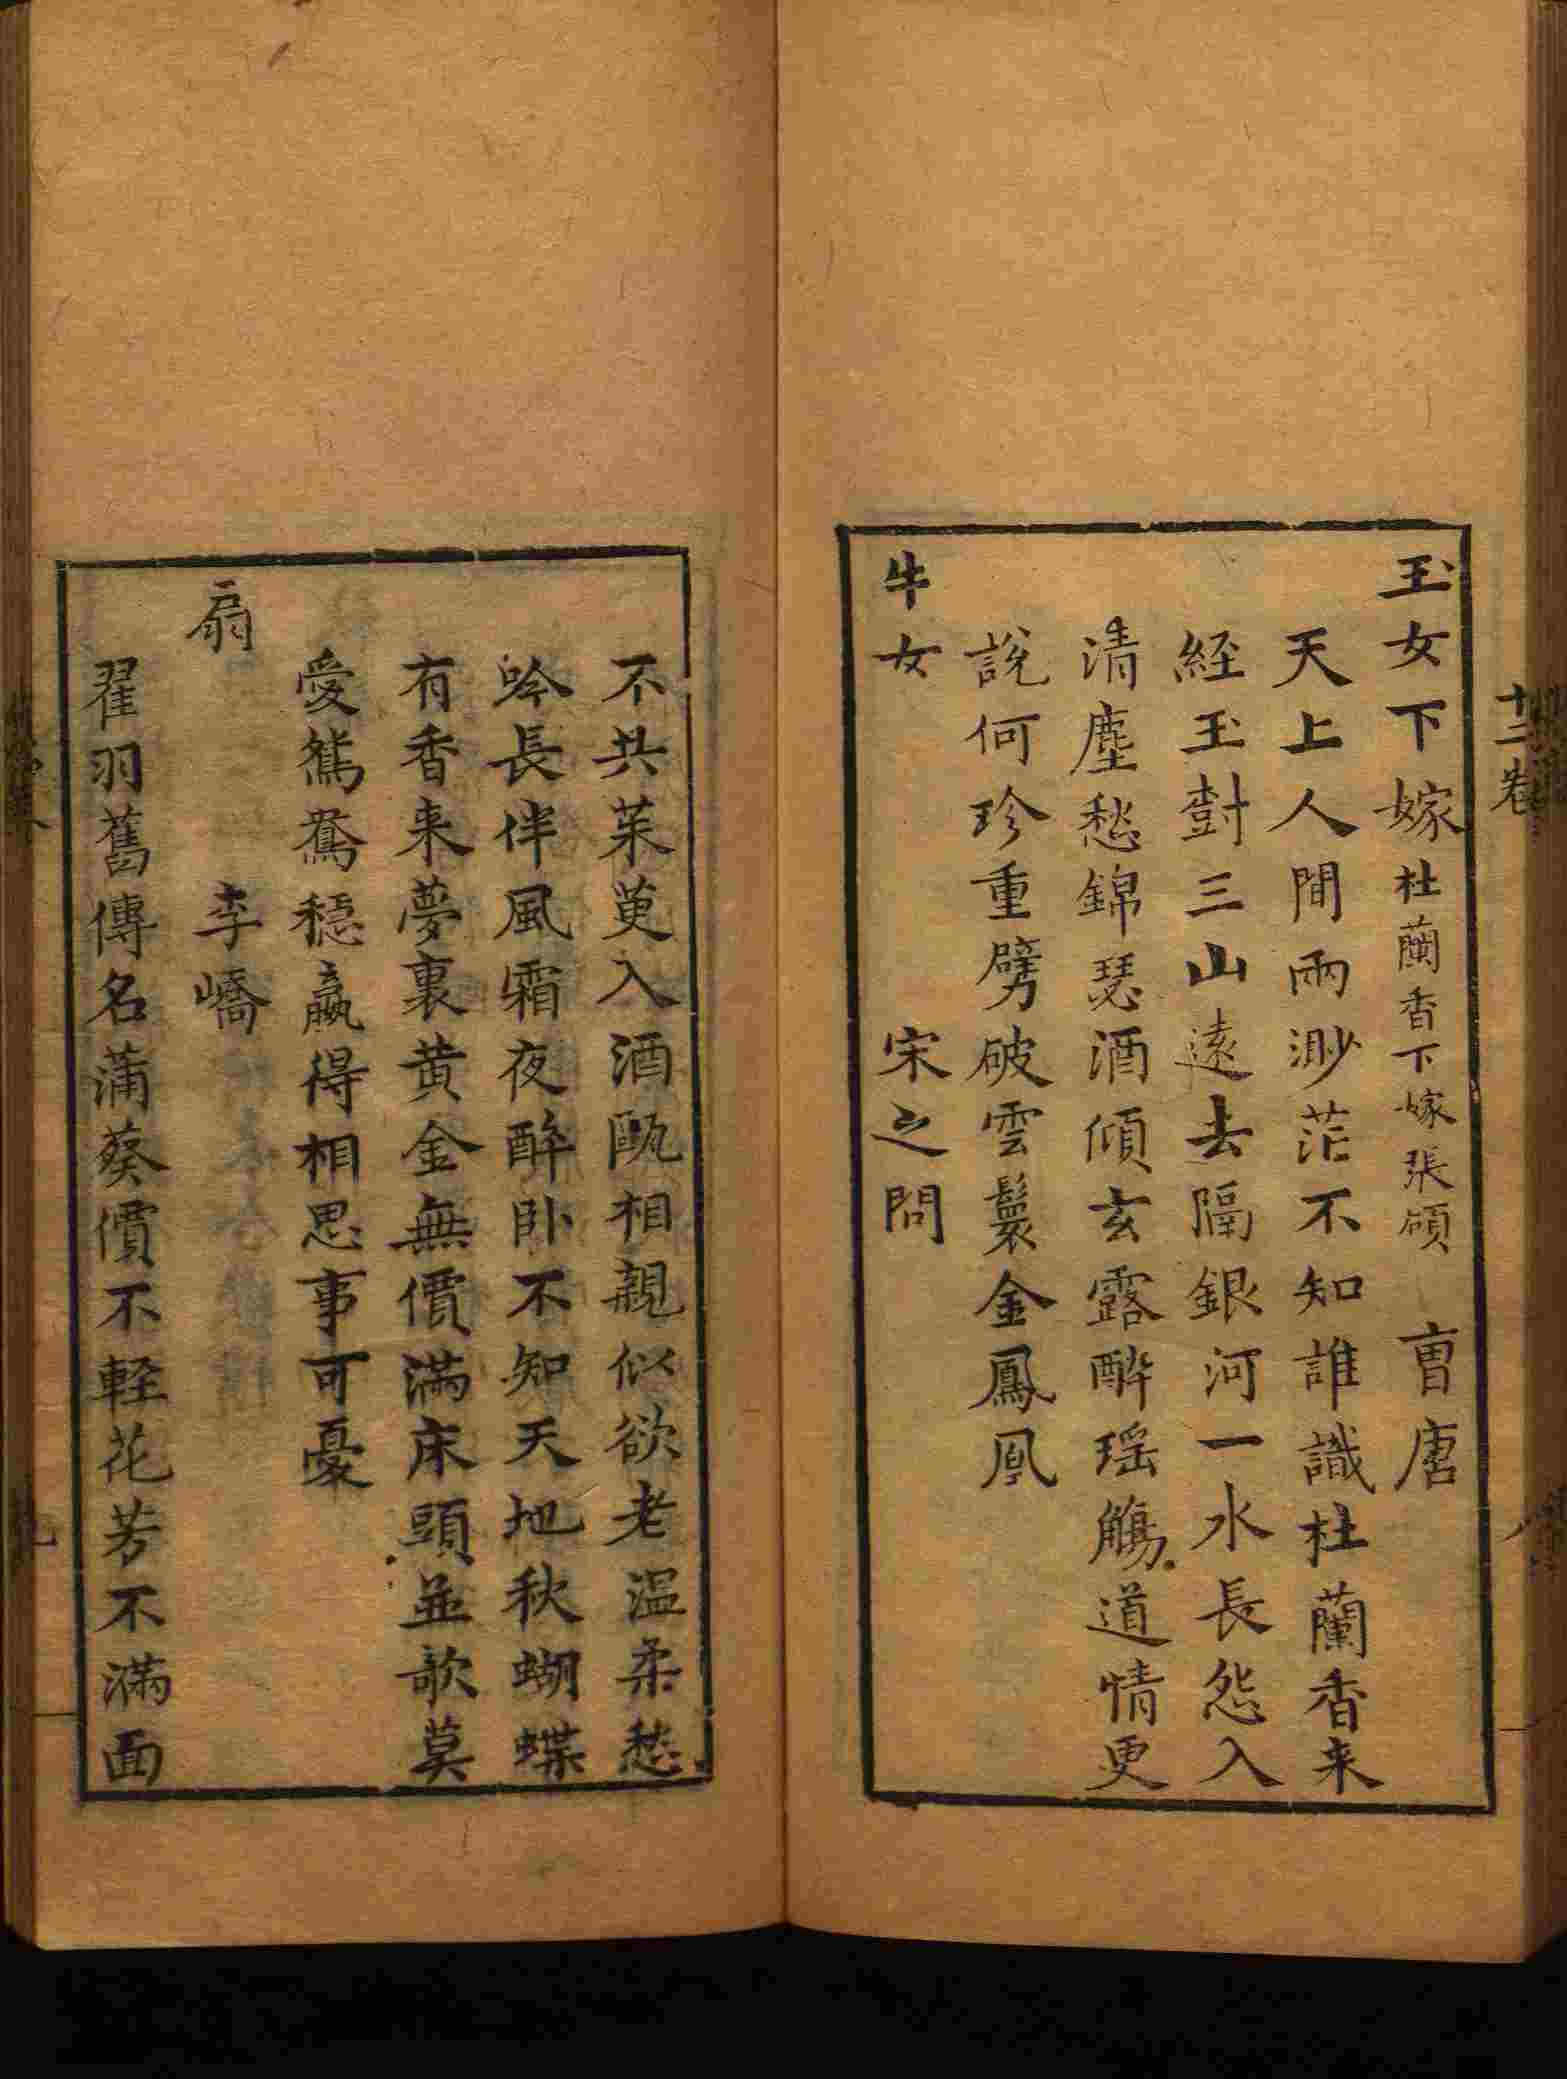 十二卷
玉女下嫁杜蘭香下嫁張碩 曺唐
天上人間兩渺茫不知誰識杜蘭香来
経玉對三山遠去隔銀河一水長怨入
清塵愁錦瑟酒傾玄露醉瑶觴道情更
說何珍重劈破雲鬟金鳳凰
牛女 宋之問
不共茱萸入酒甌相親似欲老温柔愁
吟長伴風霜夜醉卧不知天地秋蝴蝶
有香来夢裏黄金無價滿床頭並歌莫
愛鴛鴦穏贏得相思事可憂
扇 李嶠
翟羽舊傳名蒲葵價不軽花芳不滿面